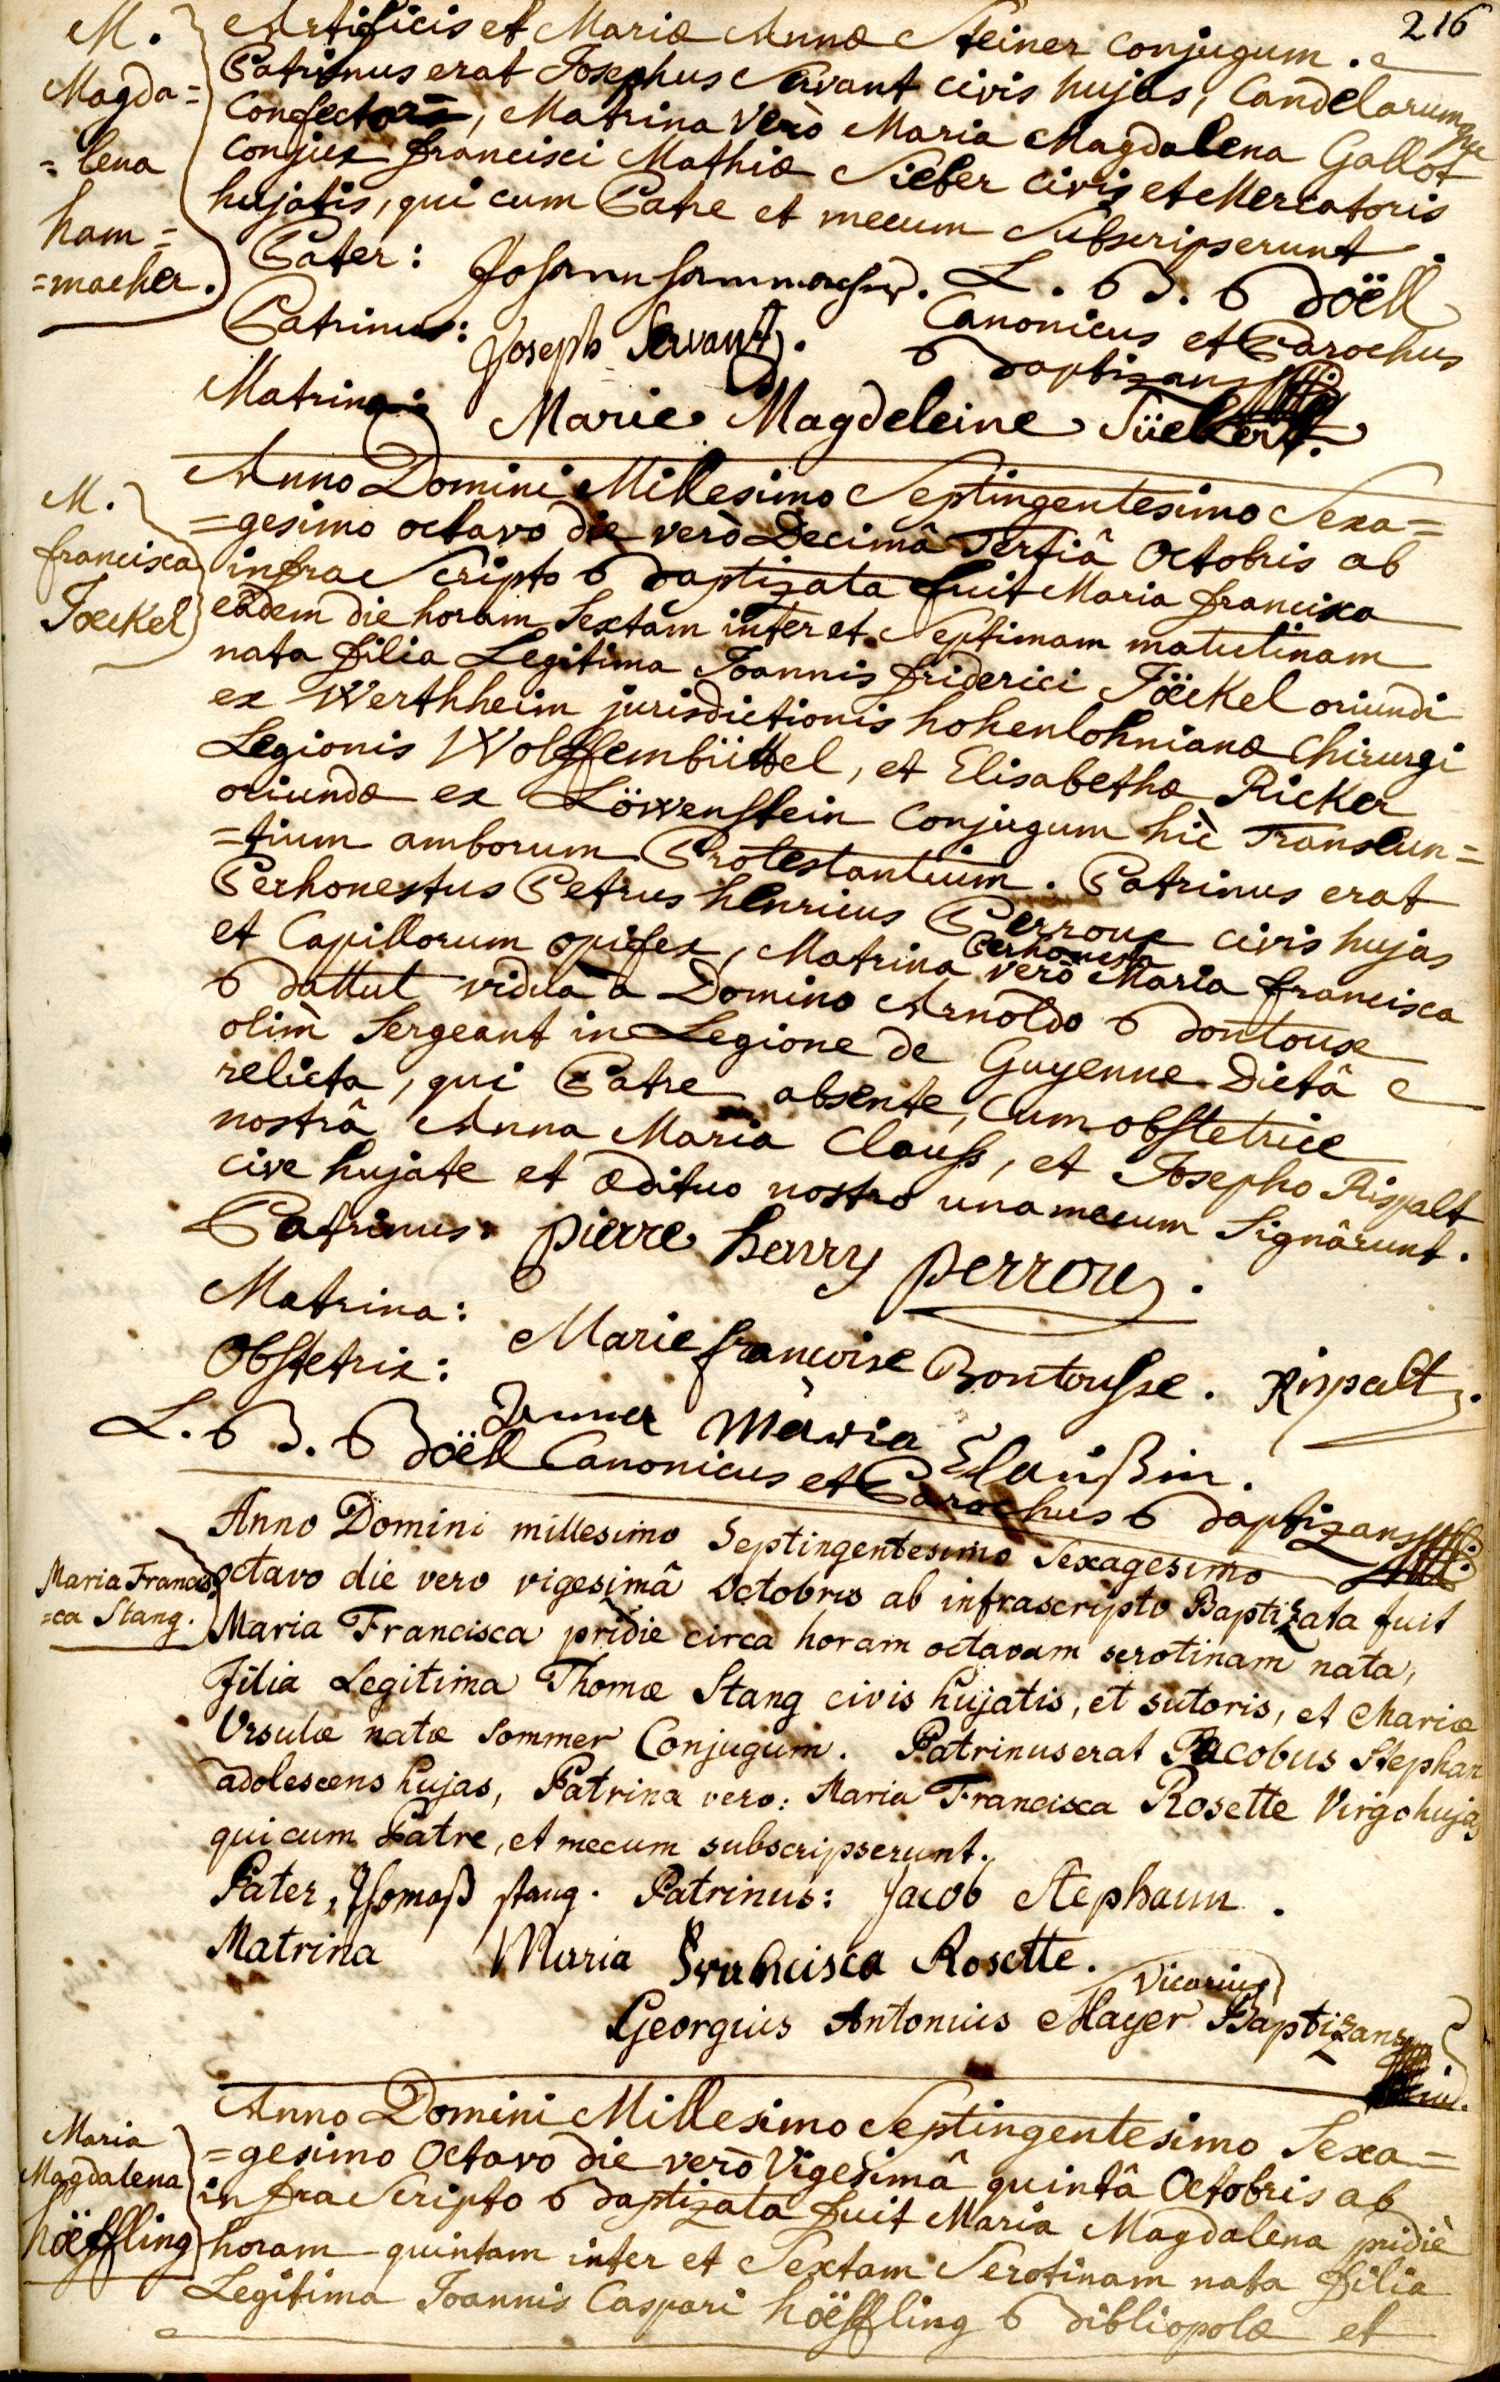 216
M.
Magda=
=lena
ham=
=macher.
Artificis et Mariæ Annæ Steiner conjugum.
Patrinus erat Josephus Servant civis hujas, Candelarumque
Confector, Matrina verò Maria Magdalena Gallot
Conjux Francisci Mathiæ Sieber civis et Mercatoris
hujatis, qui cum Patre et mecum Subscripserunt.
Pater: Johann hammacher. L. B. Boëll
Canonicus et Parochus
Patrinus: Joseph Servant. Baptizans
Matrina: Marie Magdeleine
M.
francisca
Jöeckel
Anno Domini Millesimo Septingentesimo Sexa=
=gesimo octavo die verò Decimâ Tertiâ Octobris ab
infra Scripto Baptizata fuit Maria francisca
eâdem die horam Sextam inter et Septimam matutinam
nata filia Legitima Joannis friderici Jöeckel oriundi
ex Werthheim jurisdictionis hohenlohnianæ Chirurgi
Legionis Wolffembüttel, et Elisabethæ Ricker
oriundæ ex Löwenstein Conjugum hìc Transeun=
=tium amborum Protestantium. Patrinus erat
Perhonestus Petrus henricus Perroux civis hujas
et Capillorum opifex, Matrina verò Perhonesta Maria francisca
Battut vidua à Domino Arnoldo Bontoux
olim Sergeant in Legione de Guyenne Dictâ
relicta, qui Patre absente, Cum obstetrice
nostrâ Anna Maria Clauss, et Josepho Rispalt
cive hujate et ædituo nostro una mecum Signârunt.
Patrinus: pierre henry perrou.
Matrina: Marie françoise Bontousse. Rispalt.
Obstetrix: Maria Claußin.
L. B. Boëll Canonicus et Parochus Baptizans
Maria Francis
=ca Stang.
Anno Domini millesimo Septingentesimo Sexagesimo
octavo die vero vigesimâ Octobris ab infrascripto Baptizata fuit
Maria Francisca pridie circa horam octavam serotinam nata,
Filia Legitima Thomæ Stang civis hujatis, et sutoris, et Mariæ
Ursulæ natæ Sommer Conjugum. Patrinus erat Jacobus Stephan
adolescens hujas, Patrina vero: Maria Francisca Rosette Virgo hujas
qui cum Patre, et mecum subscripserunt.
Pater, Thomaß stang. Patrinus: Jacob Stephann.
Matrina Maria Francisca Rosette.
Georgius Antonius Mayer Vicarius Baptizans
Maria
Magdalena
höeffling
Anno Domini Millesimo Septingentesimo Sexa=
=gesimo Octavo die verò Vigesimâ quintâ Octobris ab
infra Scripto Baptizata fuit Maria Magdalena pridiè
horam quintam inter et Sextam Serotinam nata filia
Legitima Joannis Caspari höeffling Bibliopolæ et